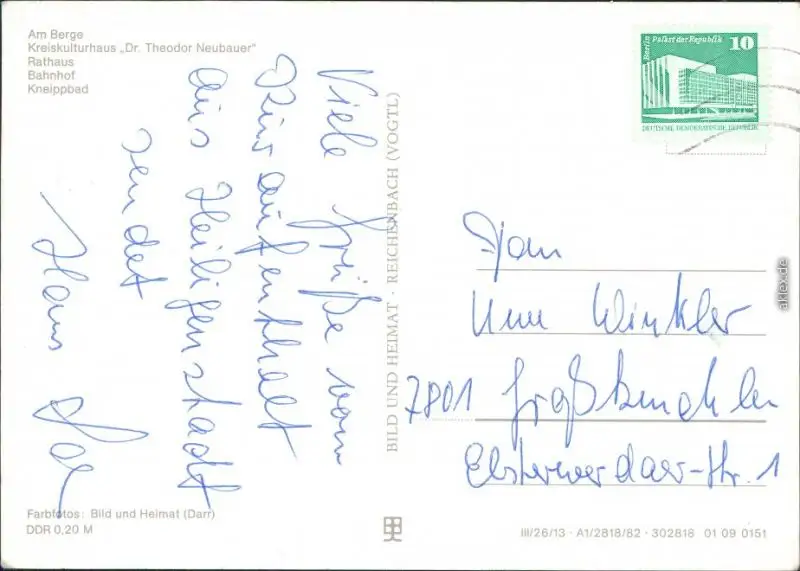 Am Berge
Kreiskulturhaus „Dr. Theodor Neubauer"
Rathaus
Bahnhof
Kneippbad
Viele Grüße vom
Kuraufenthalt
aus Heiligenstadt
sendet
Hans
BILD UND HEIMAT · REICHENBACH (VOGTL)
Berlin Palast der Republik 10
DEUTSCHE DEMOKRATISCHE REPUBLIK
Winkler
7801 Großkmehlen
Elsterwerdaer-Str. 1
Farbfotos: Bild und Heimat (Darr)
DDR 0,20 M
III/26/13 · A1/2818/82 · 302818 01 09 0151
aklex.de